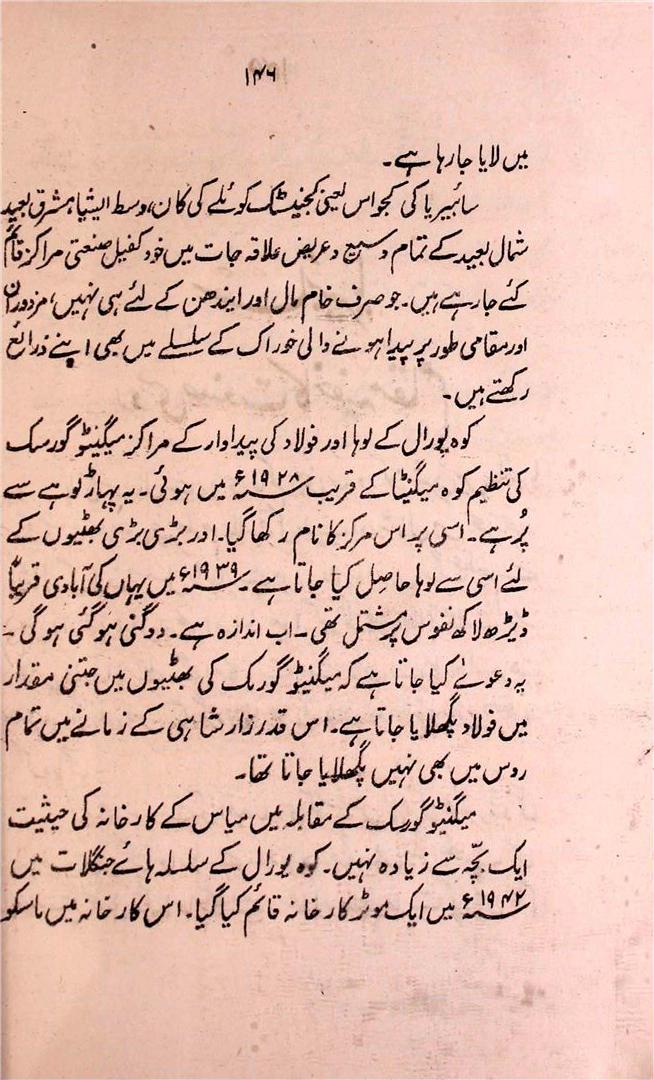 ۱۴۶
میں لایا جا رہا ہے۔
سائبیریا کی کجواس یعنی کجنیٹسک کوئلے کی کان، وسط ایشیا، مشرق بعید
شمال بعید کے تمام وسیع و عریض علاقہ جات میں خود کفیل صنعتی مراکز قائم
کئے جا رہے ہیں۔ جو صرف خام مال اور ایندھن کے لئے ہی نہیں، مزدوران
اور مقامی طور پر پیدا ہونے والی خوراک کے سلسلے میں بھی اپنے ذرائع
رکھتے ہیں۔
کوہ یورال کے لوہا اور فولاد کی پیداوار کے مراکز میگنیٹو گورسک
کی تنظیم کوہ میگنیٹا کے قریب ۱۹۲۸ء میں ہوئی۔ یہ پہاڑ لوہے سے
پُر ہے۔ اسی پر اس مرکز کا نام رکھا گیا۔ اور بڑی بڑی بھٹیوں کے
لئے اسی سے لوہا حاصل کیا جاتا ہے۔ ۱۹۳۹ء میں یہاں کی آبادی قریباً
ڈیڑھ لاکھ نفوس پر مشتمل تھی۔ اب اندازہ ہے۔ دوگنی ہو گئی ہو گی۔
یہ دعوےٰ کیا جاتا ہے کہ میگنیٹو گورسک کی بھٹیوں میں جتنی مقدار
میں فولاد پگھلایا جاتا ہے۔ اس قدر زار شاہی کے زمانے میں تمام
روس میں بھی نہیں پگھلایا جاتا تھا۔
میگنیٹو گورسک کے مقابلہ میں میاس کے کارخانہ کی حیثیت
ایک بچّہ سے زیادہ نہیں۔ کوہ یورال کے سلسلہ ہائے جنگلات میں
۱۹۴۲ء میں ایک موٹر کارخانہ قائم کیا گیا۔ اس کارخانہ میں ماسکو